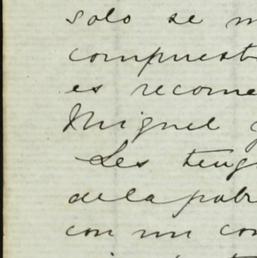 solo se m
compuest
es recome
Miguel y
Les teng
de la pobr
con un con